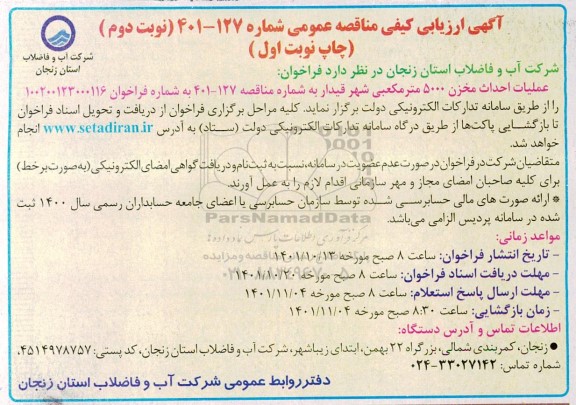 آگهی ارزیابی کیفی مناقصه عمومی شماره ۱۲۷-۴۰۱ (نوبت دوم)
(چاپ نوبت اول)
شرکت آب و فاضلاب
استان زنجان
شرکت آب و فاضلاب استان زنجان در نظر دارد فراخوان:
عملیات احداث مخزن ۵۰۰۰ مترمکعبی شهر قیدار به شماره مناقصه ۱۲۷-۴۰۱ به شماره فراخوان ۱۰۰۲۰۰۱۲۳۰۰۰۱۱۶
را از طریق سامانه تدارکات الکترونیکی دولت برگزار نماید. کلیه مراحل برگزاری فراخوان از دریافت و تحویل اسناد فراخوان
تا بازگشایی پاکت‌ها از طریق درگاه سامانه تدارکات الکترونیکی دولت (ستاد) به آدرس www.setadiran.ir انجام
خواهد شد.
متقاضیان شرکت در فراخوان در صورت عدم عضویت در سامانه، نسبت به ثبت نام و دریافت گواهی امضای الکترونیکی (به صورت برخط)
برای کلیه صاحبان امضای مجاز و مهر سازمانی اقدام لازم را به عمل آورند.
* ارائه صورت های مالی حسابرسی شده توسط سازمان حسابرسی یا اعضای جامعه حسابداران رسمی سال ۱۴۰۰ ثبت
شده در سامانه پردیس الزامی می‌باشد.
ParsNamadData
مواعد زمانی:
- تاریخ انتشار فراخوان: ساعت ۸ صبح مورخه ۱۴۰۱/۱۰/۱۳
- مهلت دریافت اسناد فراخوان: ساعت ۸ صبح مورخه ۱۴۰۱/۱۰/۲۰
- مهلت ارسال پاسخ استعلام: ساعت ۸ صبح مورخه ۱۴۰۱/۱۱/۰۴
- زمان بازگشایی: ساعت ۸:۳۰ صبح مورخه ۱۴۰۱/۱۱/۰۴
اطلاعات تماس و آدرس دستگاه:
● زنجان، کمربندی شمالی، بزرگراه ۲۲ بهمن، ابتدای زیباشهر، شرکت آب و فاضلاب استان زنجان، کد پستی: ۴۵۱۴۹۷۸۷۵۷،
شماره تماس: ۳۳۰۲۷۱۴۲-۰۲۴
دفتر روابط عمومی شرکت آب و فاضلاب استان زنجان